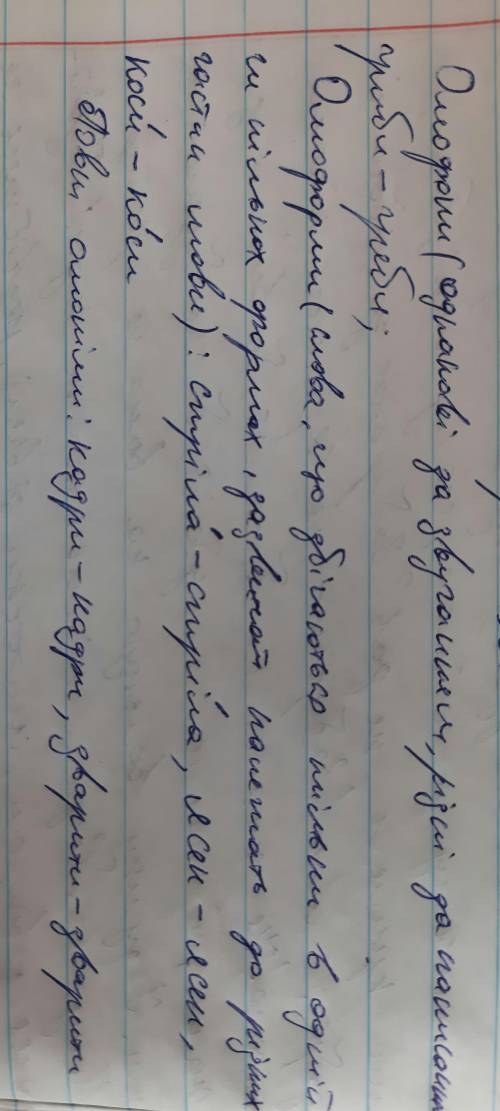 Омофони (однакові за звучанням, різні за написанн
гриби – греби;
Омоформи (слова, що збігаються тільки в одній
чи кількох формах, зазвичай належать до різних
частин мови): стріла́ – стрі́ла, ясен – ясен,
коси́ – ко́си
Повні омоніми: кадри – кадри, зварити – зварити